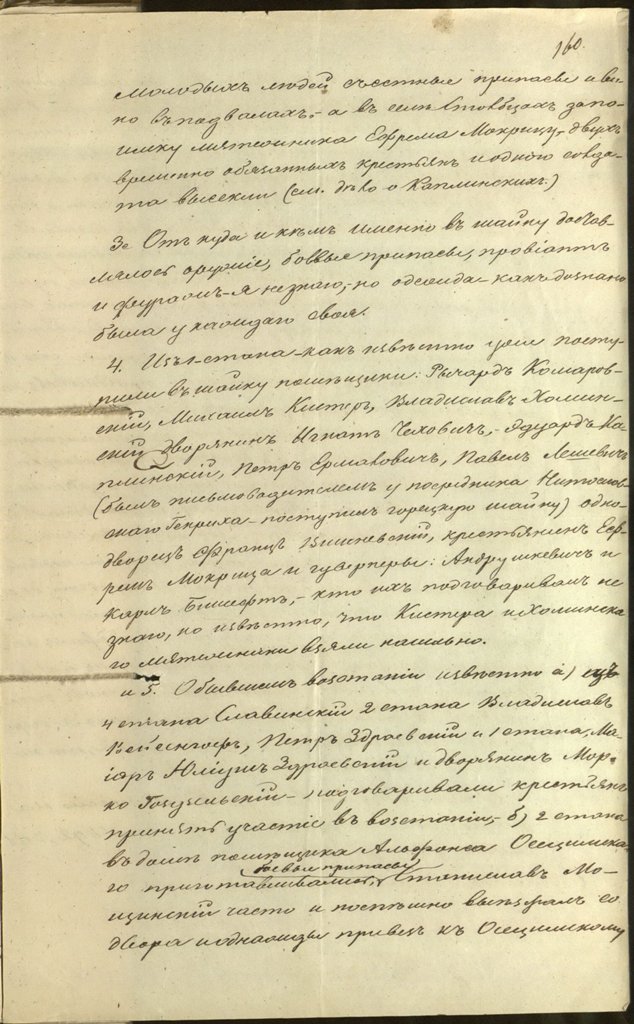 160.
молодыхъ людей съестные припасы и ви-
но въ подвалахъ, а въ селѣ Стовбцахъ запо-
имку мятежника Ефрема Мокрицу, двухъ
временно обязанныхъ крестьянъ и одного солда-
та высекли (см. дѣло о Каплинскихъ.)
3е Откуда и кѣмъ именно въ шайку достав-
лялось оружіе, боевые припасы, провіантъ
и фуражъ – я не знаю, но одежда – какъ дознано
была у каждаго своя.
4. Изъ 1 стана – какъ извѣстно усп посту-
пили въ шайку помѣщики: Рычардъ Комаров-
скій, Михаилъ Кистеръ, Владиславъ Хомин-
скій, дворянинъ Игнатъ Чеховичъ, – Эдуардъ Ка-
плинскій, Петръ Ермаковичъ, Павелъ Лешевичъ
(былъ письмоводителемъ у посредника Нитослав-
скаго Генриха – поступилъ горецкую шайку) одно-
дворецъ Францъ Вишневскій, крестьянинъ Еф-
ремъ Мокрица и гувернеры: Андрушкевичъ и
Карлъ Бишефтъ, – кто ихъ подговаривалъ не
знаю, но извѣстно, что Кистера и Хоминска
го мятежники взяли насильно.
и 5. О бывшемъ возстаніи извѣстно а) изъ
4 стана Славинскій 2 стана Владиславъ
Вейсенгофъ, Петръ Здроевскій и 1 стана, Ма-
іоръ Юліушъ Здроевскій и дворянинъ Мор-
ко – подговаривали крестьянъ
принять участіе въ возстаніи, – б) 2 стана
въ домѣ помѣщика Альфонса Осецимска-
го приготавливались боевые припасы, Станиславъ Мо-
щинскій часто и поспѣшно выѣзжалъ со
двора и однажды привезъ къ Осецимскому